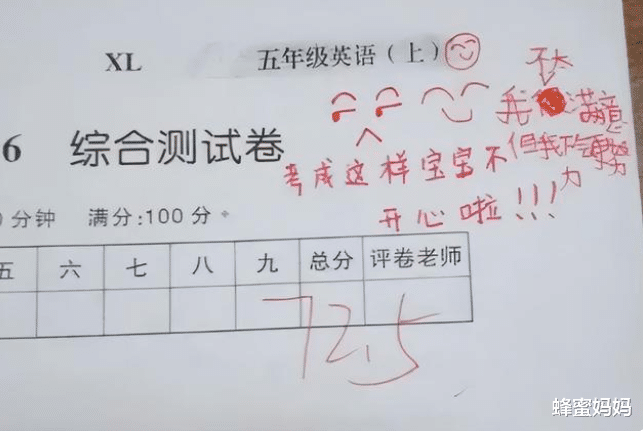 XL 五年级英语（上）
不太
我 满意
6 综合测试卷
但我会努力
考成这样宝宝不
开心啦!!!
分钟 满分:100分
五 六 七 八 九 总分 评卷老师
72.5
蜂蜜妈妈